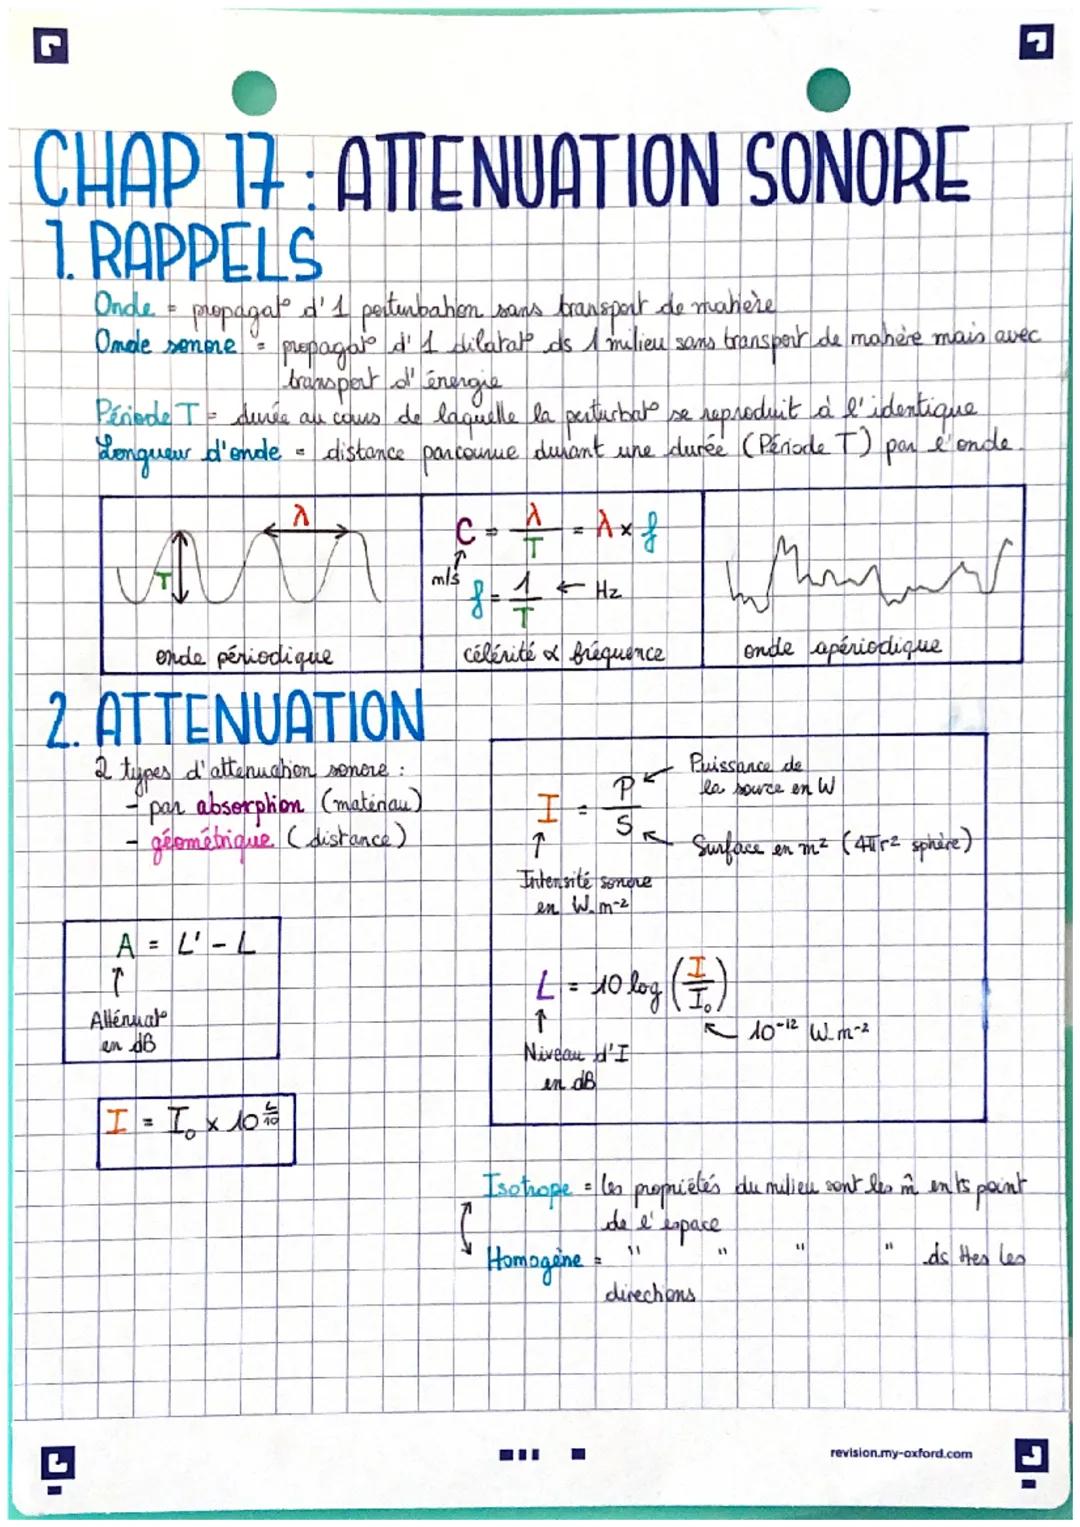 CHAP 17 : ATTENUATION SONORE
1. RAPPELS
Onde = propagat° d'1 perturbation sans transport de matière
Onde sonore = propagat° d'1 dilatat° ds 1 milieu sans transport de matière mais avec
transport d'énergie
Période T = durée au cours de laquelle la perturbat° se reproduit à l'identique
Longueur d'onde = distance parcourue durant une durée (Période T) par l'onde.
λ
T
onde périodique
C = λ/T = λ × f
m/s
f = 1/T ← Hz
célérité & fréquence
onde apériodique
2. ATTENUATION
2 types d'attenuation sonore :
- par absorption (matériau)
- géométrique (distance)
I = P/S
Puissance de
la source en W
Surface en m² (4πr² sphère)
Intensité sonore
en W.m⁻²
A = L' - L
Atténuat°
en dB
L = 10 log (I/I₀)
10⁻¹² W.m⁻²
Niveau d'I
en dB
I = I₀ × 10^(L/10)
Isotrope = les propriétés du milieu sont les m̂ en ts point
de l'espace
Homogène = " " " " ds ttes les
directions
revision.my-oxford.com